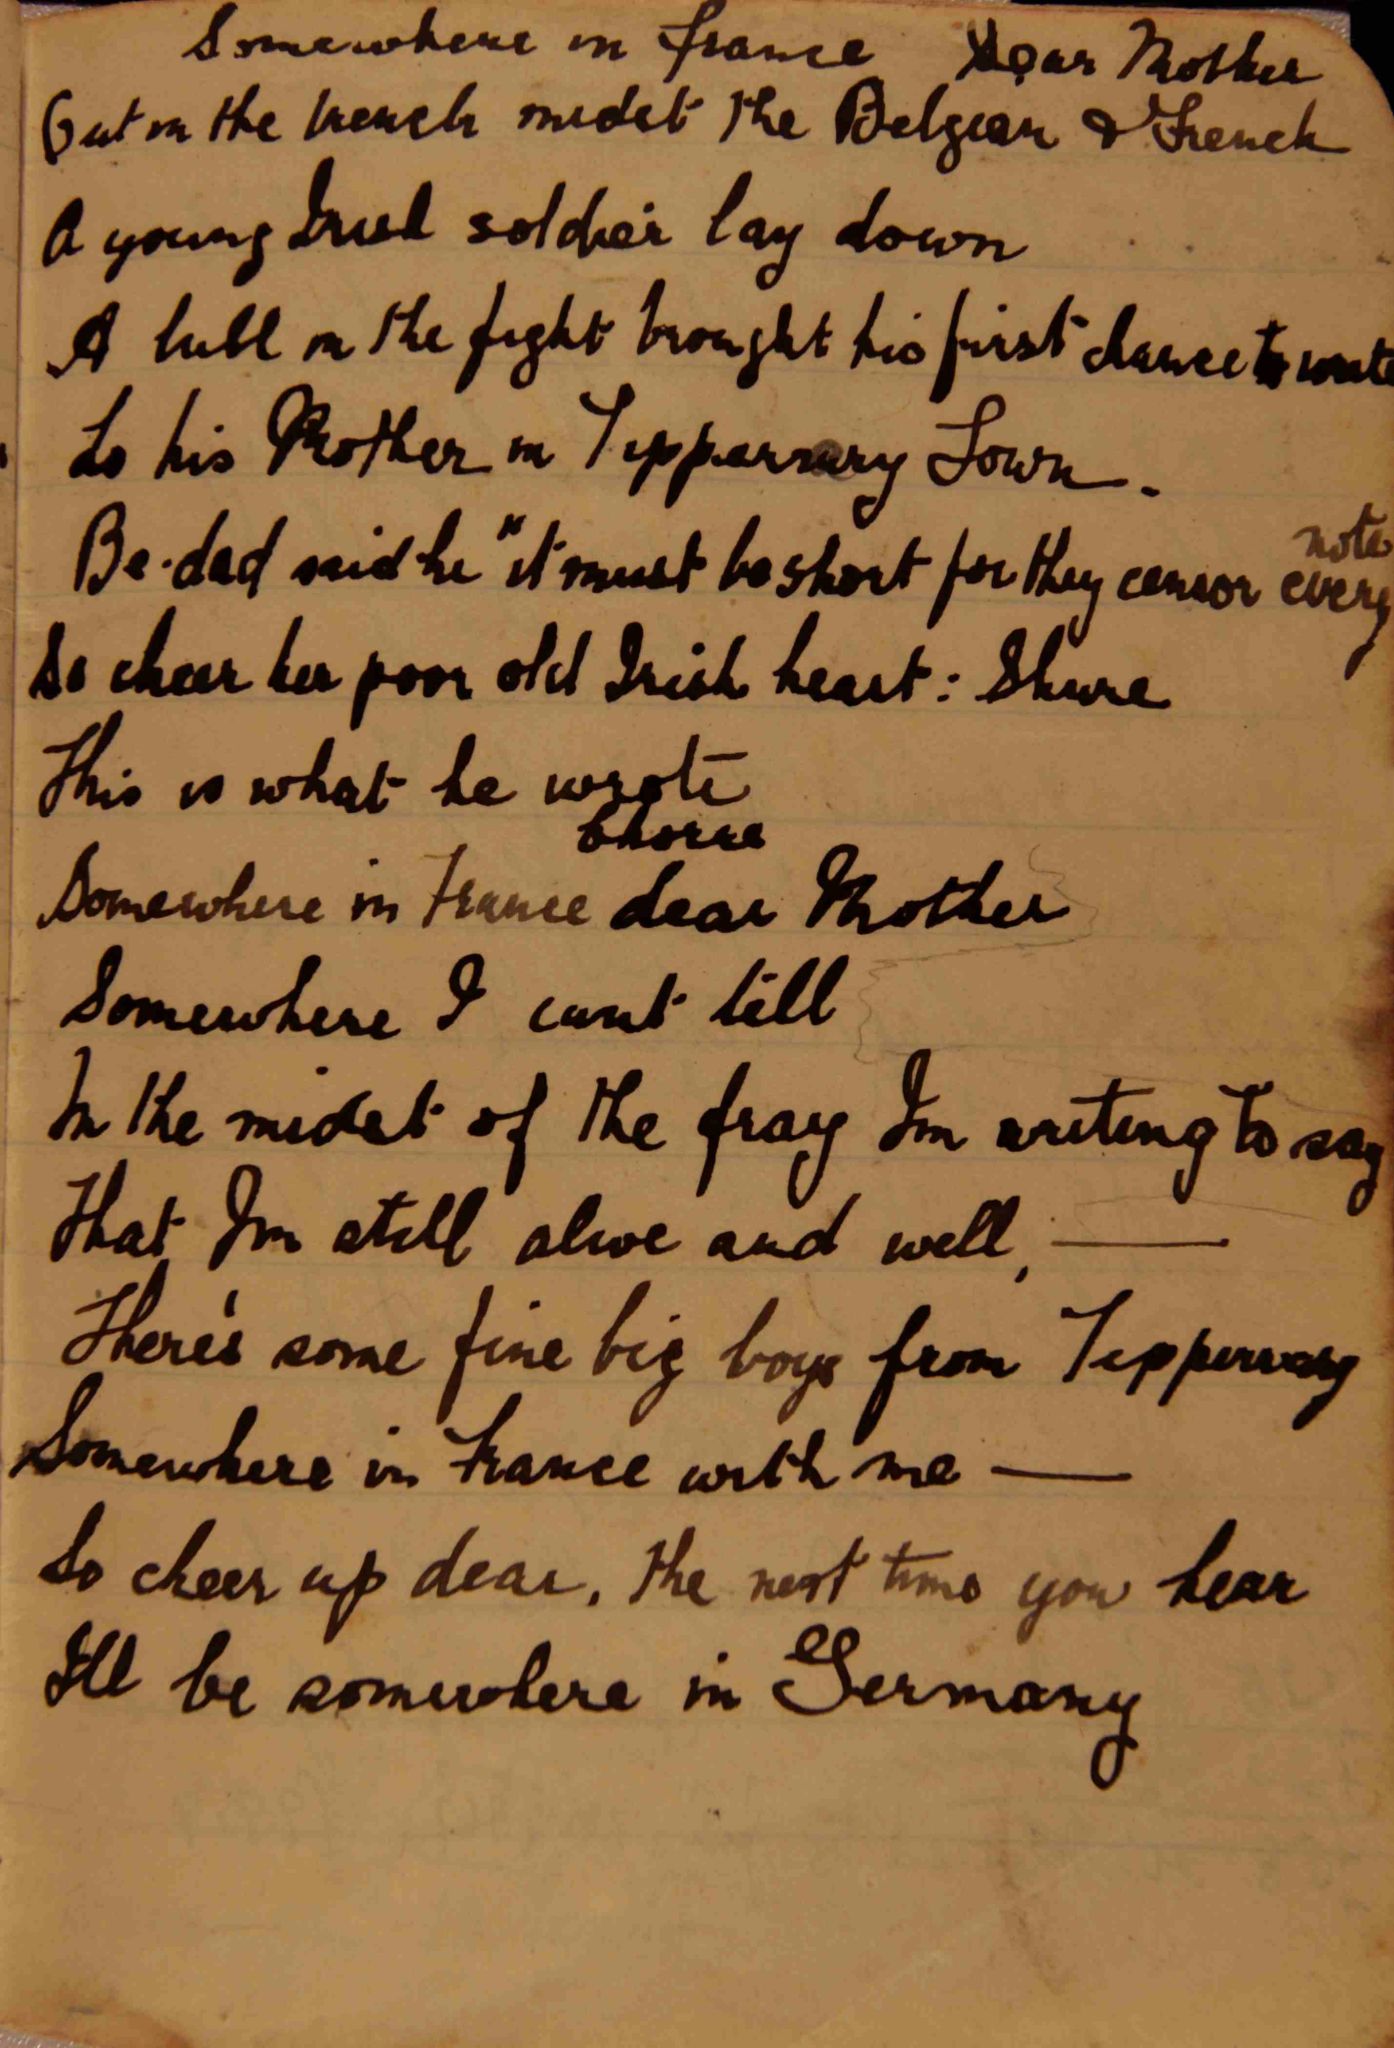 Somewhere in France Dear Mother
Out in the trench midst the Belgian & French
A young Irish soldier lay down
A lull in the fight brought his first chance to write
To his Mother in Tipparrary Town.
Be-dad said he "it must be short for they censor every note
So cheer her poor old Irish heart: Shure
This is what he wrote
Somewhere in France dear Mother
Somewhere I cant tell
In the midst of the fray Im writing to say
That Im still alive and well, —
There's some fine big boys from Tipperary
Somewhere in France with me —
So cheer up dear, the next time you hear
Ill be somewhere in Germany